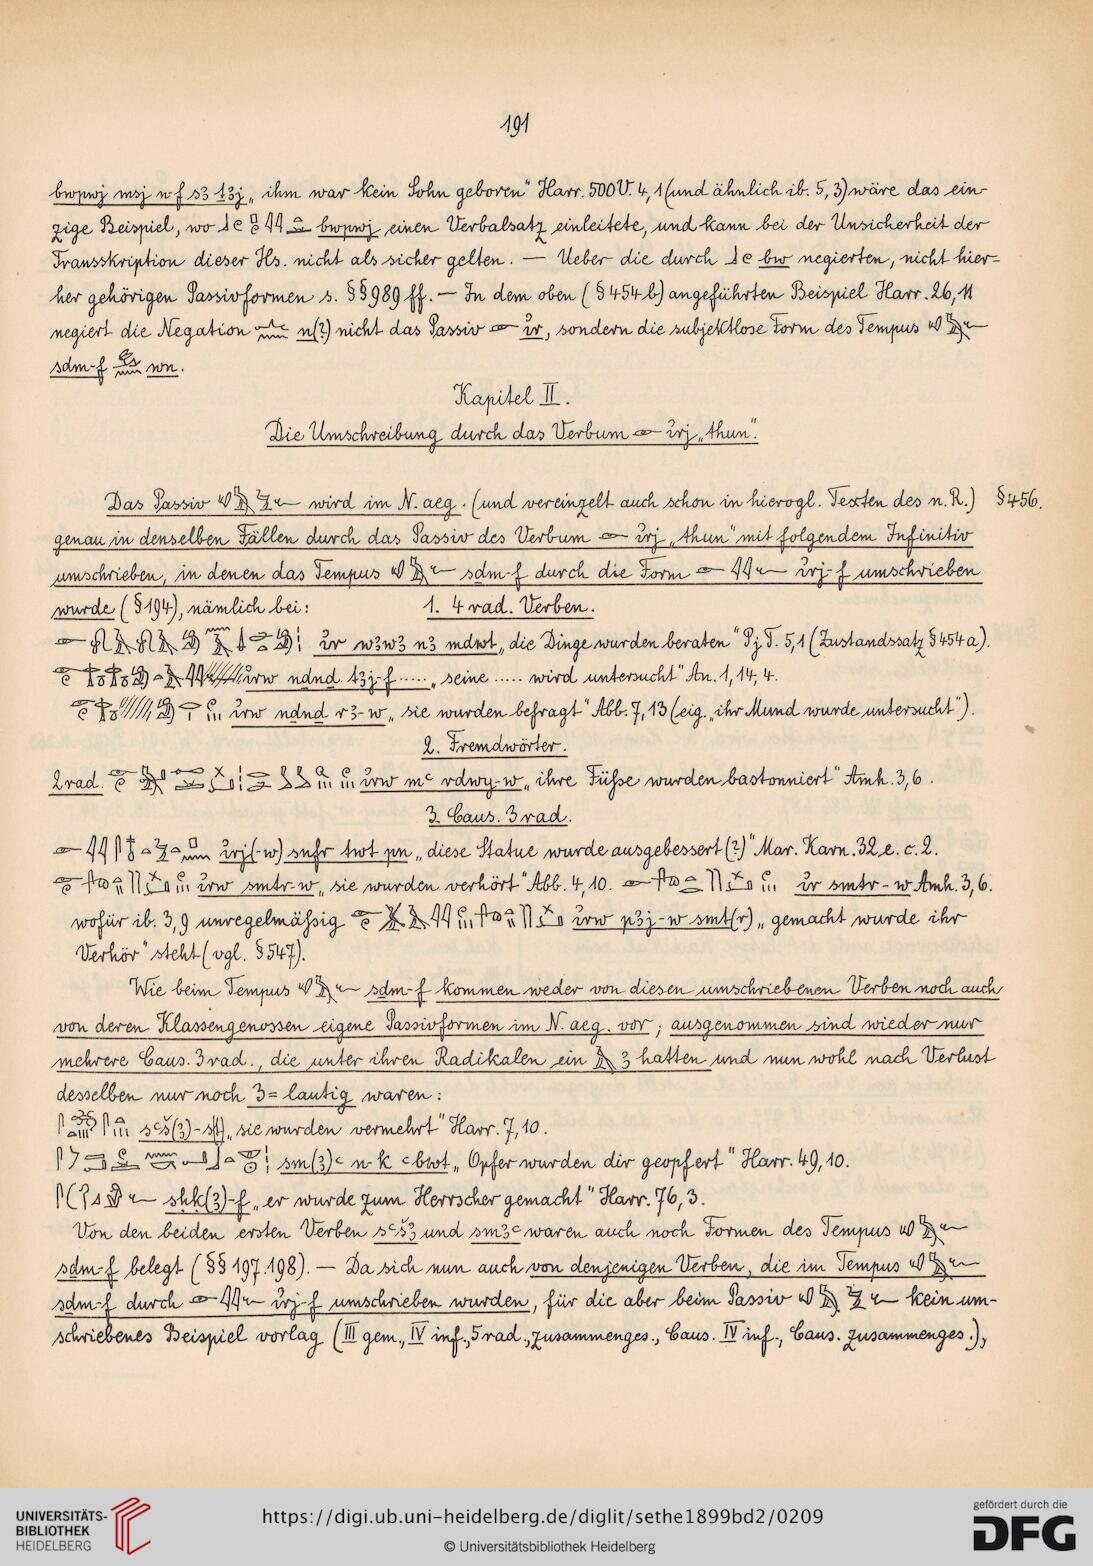 191
bwpwj msj n-f s3 ṯ3j „ihm war kein Sohn geboren“ Harr. 500 V. 4, 1 (und ähnlich ib. 5, 3) wäre das ein-
zige Beispiel, wo bwpwj einen Verbalsatz einleitete, und kann bei der Unsicherheit der
Transskription dieser Hs. nicht als sicher gelten. — Ueber die durch bw negierten, nicht hier=
her gehörigen Passivformen s. §§ 989 ff. — In dem oben (§ 454 b) angeführten Beispiel Harr. 26, 11
negiert die Negation n(?) nicht das Passiv ir, sondern die subjektlose Form des Tempus
sdm-f wn.
Kapitel II.
Die Umschreibung durch das Verbum irj „thun“.
Das Passiv wird im N. aeg. (und vereinzelt auch schon in hierogl. Texten des n. R.) § 456.
genau in denselben Fällen durch das Passiv des Verbum irj „thun“ mit folgendem Infinitiv
umschrieben, in denen das Tempus sdm-f durch die Form irj-f umschrieben
wurde (§ 194), nämlich bei: 1. 4 rad. Verben.
ir w3w3 n3 mdwt „die Dinge wurden beraten“ Pj. T. 5, 1 (Zustandssatz § 454 a).
irw ndnd t3j-f ..... „seine ..... wird untersucht“ An. 1, 14, 4.
irw ndnd r3-w „sie wurden befragt“ Abb. 7, 13 (eig. „ihr Mund wurde untersucht“).
2. Fremdwörter.
2 rad. irw mꜥ rdwy-w „ihre Füſse wurden bastonniert“ Amh. 3, 6.
3. Caus. 3 rad.
irj(-w) snfr twt pn „diese Statue wurde ausgebessert (?)“ Mar. Karn. 32 e. c. 2.
irw smtr-w „sie wurden verhört“ Abb. 4, 10. — ir smtr-w Amh. 3, 6.
wofür ib. 3, 9 unregelmäſsig irw p3j-w smt(r) „gemacht wurde ihr
Verhör“ steht (vgl. § 547).
Wie beim Tempus sdm-f kommen weder von diesen umschriebenen Verben noch auch
von deren Klassengenossen eigene Passivformen im N. aeg. vor; ausgenommen sind wieder nur
mehrere Caus. 3 rad., die unter ihren Radikalen ein 3 hatten und nun wohl nach Verlust
desselben nur noch 3=lautig waren:
sꜥš(3)-st „sie wurden vermehrt“ Harr. 7, 10.
sm(3)ꜥ n-k ꜥbwt „Opfer wurden dir geopfert“ Harr. 49, 10.
sḥḳ(3)-f „er wurde zum Herrscher gemacht“ Harr. 76, 3.
Von den beiden ersten Verben sꜥš3 und sm3ꜥ waren auch noch Formen des Tempus
sdm-f belegt (§§ 197. 198). — Da sich nun auch von denjenigen Verben, die im Tempus
sdm-f durch irj-f umschrieben wurden, für die aber beim Passiv kein um-
schriebenes Beispiel vorlag (III gem., IV inf., 5 rad., zusammenges., Caus. IV inf., Caus. zusammenges.),
UNIVERSITÄTS-
BIBLIOTHEK
HEIDELBERG
https://digi.ub.uni-heidelberg.de/diglit/sethe1899bd2/0209
© Universitätsbibliothek Heidelberg
gefördert durch die
DFG